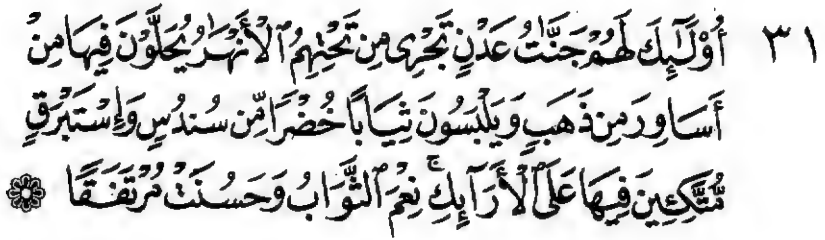 ٣١ أُوْلَـٰٓئِكَ لَهُمْ جَنَّـٰتُ عَدْنٍ تَجْرِى مِن تَحْتِهِمُ ٱلْأَنْهَـٰرُ يُحَلَّوْنَ فِيهَا مِنْ
أَسَاوِرَ مِن ذَهَبٍ وَيَلْبَسُونَ ثِيَابًا خُضْرًا مِّن سُندُسٍ وَإِسْتَبْرَقٍ
مُّتَّكِـِٔينَ فِيهَا عَلَى ٱلْأَرَآئِكِ ۚ نِعْمَ ٱلثَّوَابُ وَحَسُنَتْ مُرْتَفَقًا ۝